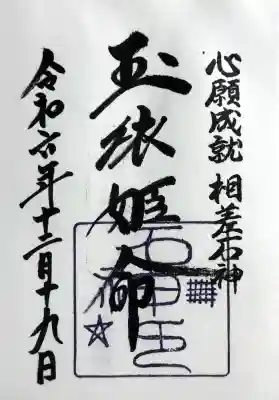 心願成就 相差石神
玉依姫命
令和六年十二月十九日
石神さん